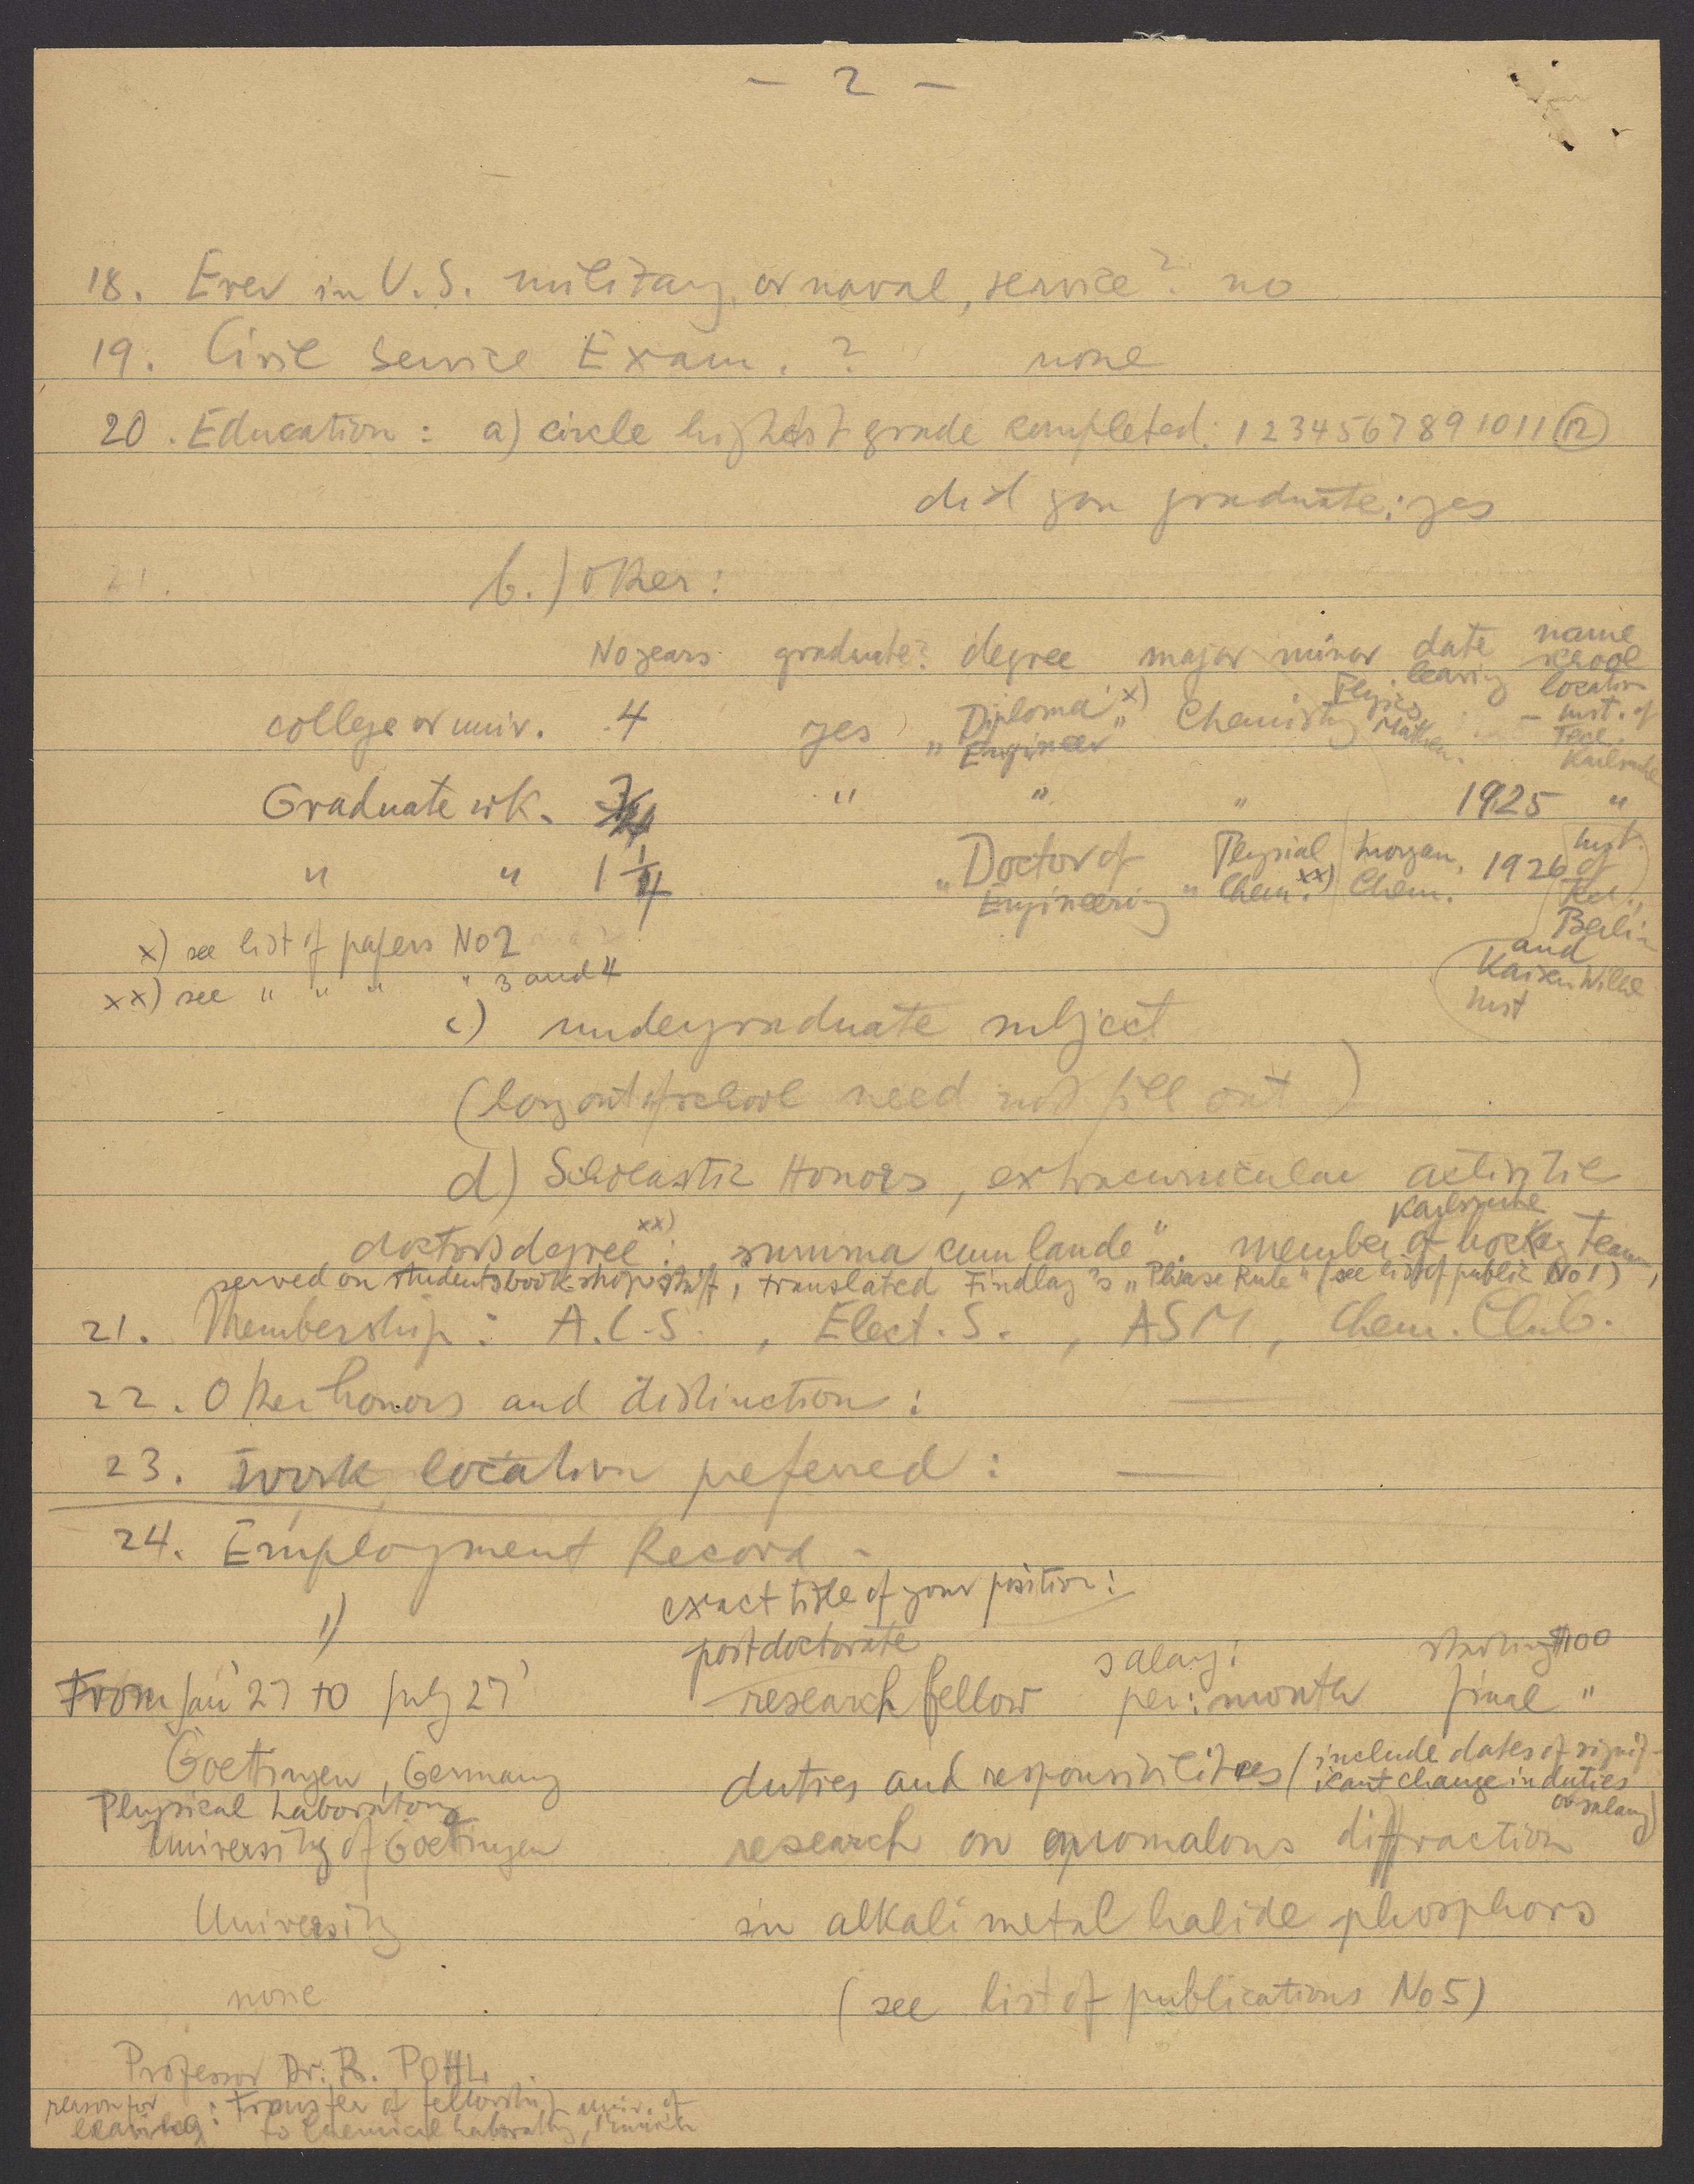 - 2 -
18. Ever in U.S. military, or naval, service? no
19. Civil Service Exam. ? none
20. Education: a) circle highest grade completed: 1 2 3 4 5 6 7 8 9 10 11 12
did you graduate: yes
21.
b.) other:
No years graduate? degree major minor date leaving name school location
college or univ. 4 yes "Diploma Engineer" x) Chemistry Physics Mathem. - Inst. of Tech. Karlsruhe
Graduate wk. " " " 1925 "
" " 1 1/4 "Doctor of Engineering" Physical Chem. xx) Inorgan. Chem. 1926 Inst. of Tech., Berlin and Kaiser Wilhel Inst
x) see list of papers No 2
xx) see " " " " 3 and 4
c) undergraduate subject
(long out of school need not fill out)
d) Scholastic Honors, extracurricular activitie
Karlsruhe
doctors degree xx): summa cum laude". member of hockey team,
served on students book-shop staff, translated Findlay's "Phase Rule" (see list of public No 1)
21. Membership: A.C.S., Elect. S., ASM, Chem. Club.
22. Other honors and distinction: —
23. Work location preferred: —
24. Employment Record -
exact title of your position:
1)
postdoctorate salary: starting $100
From Jan '27 to July 27' research fellow per: month final "
Goettingen, Germany duties and responsibilities (include dates of signif-
icant change in duties or salary)
Physical Laboratory
University of Goettingen research on anomalous diffraction
University in alkali metal halide phosphors
none (see list of publications No 5)
Professor Dr. R. POHL.
reason for leaving: Transfer of fellowship
to Chemical Laboratory, Univ. of Munich